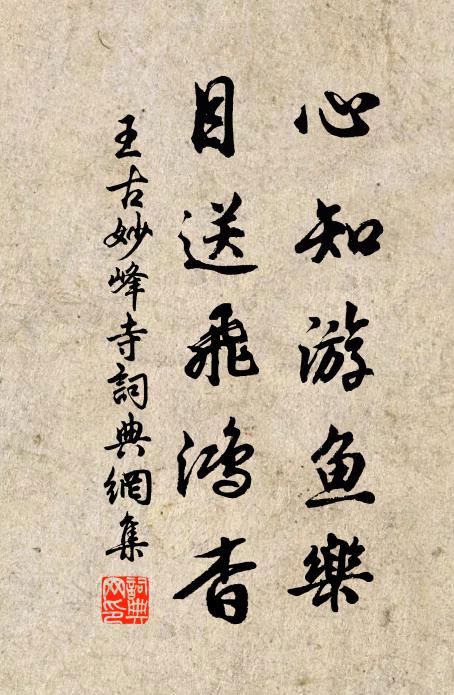 心知游鱼樂
目送飛鴻杳
王古妙峰寺詞典網集
詞典